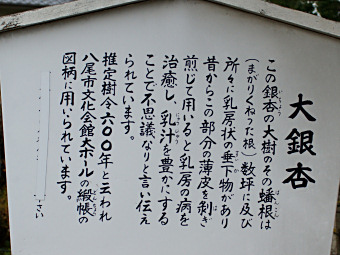 大銀杏
この銀杏の大樹のその蟠根は
(まがりくねった根)数坪に及び
所々に乳房状の垂下物があり
昔からこの部分の薄皮を剥ぎ
煎じて用いると乳房の病を
治癒し、乳汁を豊かにする
ことで不思議なりと言い伝え
られています。
推定樹令六〇〇年と云われ
八尾市文化会館大ホールの緞帳の
図柄に用いられています。